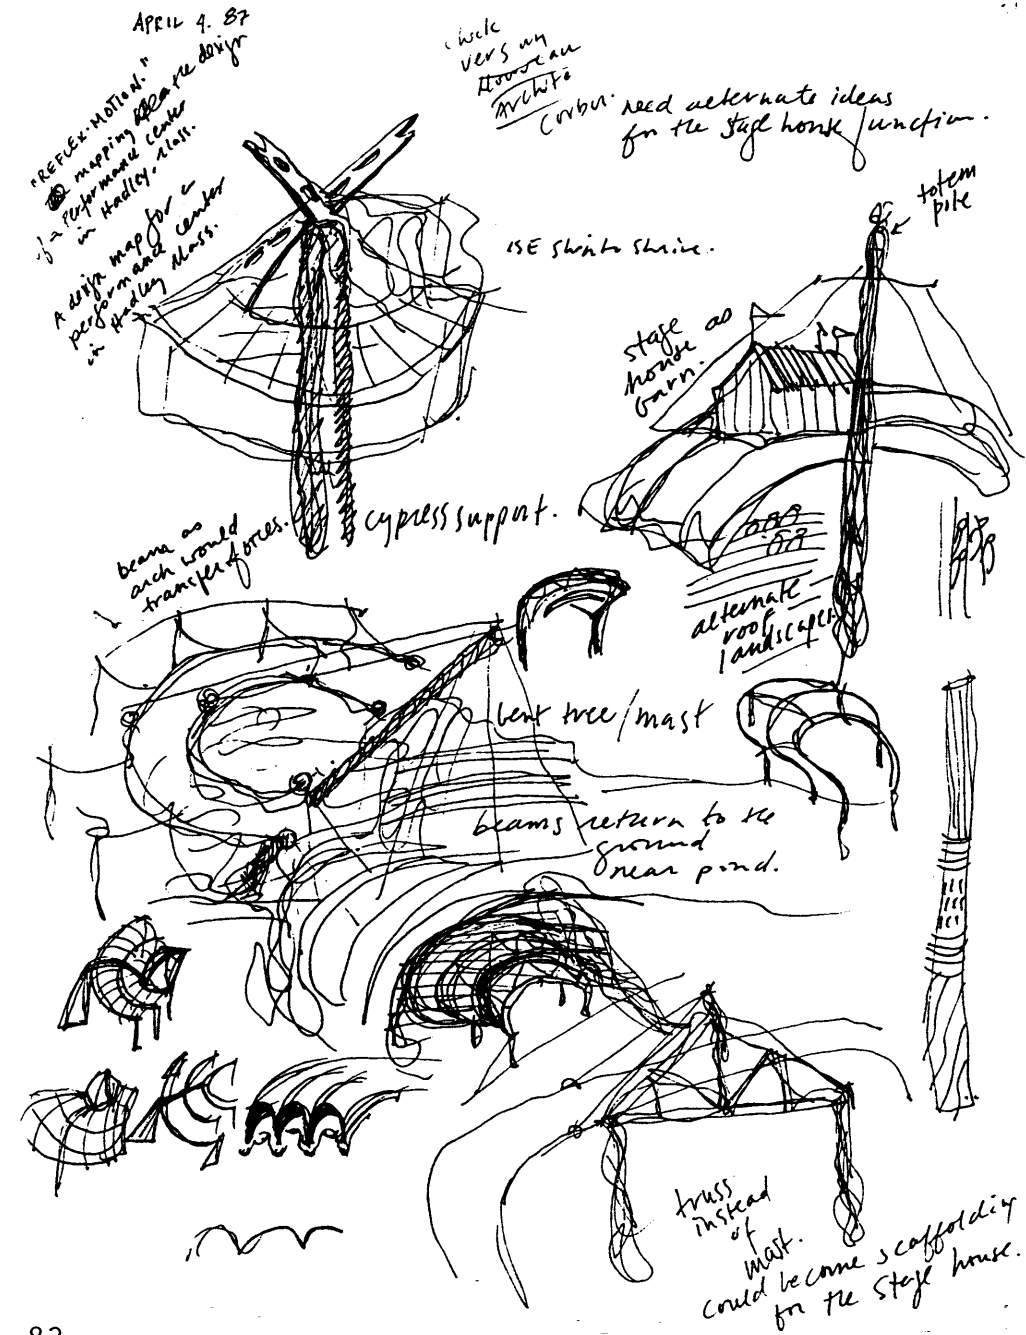 APRIL 4. 87
"REFLEX-MOTION."
mapping the design
of a performance center
in Hadley, Mass.
A design map for a
performance center
in Hadley Mass.
need alternate ideas
for the stage house junction.
totem
pole
ISE Shinto shrine.
stage as
house
barn.
cypress support.
beam as
arch would
transfer forces.
alternate
roof
landscapes
bent tree/mast
beams return to the
ground
near pond.
truss
instead
of
mast.
could become scaffolding
for the stage house.